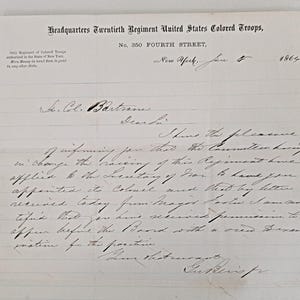 Headquarters Twentieth Regiment United States Colored Troops,
No. 350 FOURTH STREET,
Only Regiment of Colored Troops
authorized in the State of New York.
New York, Jan 5 1864
Lt. Col. Bartram
Dear Sir
I have the pleasure
of informing you that the Committee having
in charge the raising of this Regiment have
applied to the Secretary of War to have you
appointed its Colonel and that by letter
received today from Major Foster I am no
tified that you have received permission to
appear before the Board with a view to exami
nation for the position